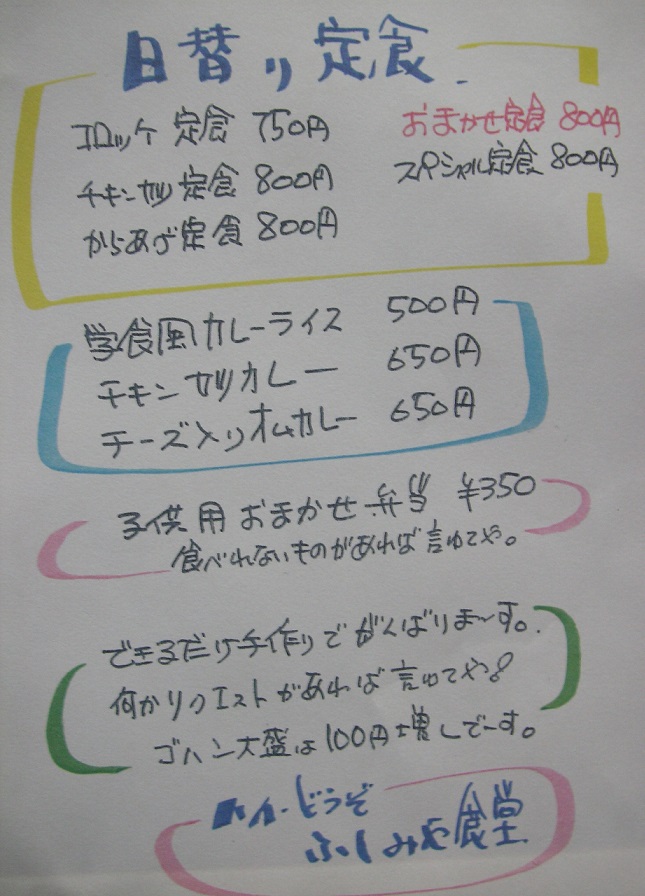 日替り定食
コロッケ定食 750円
チキンカツ定食 800円
からあげ定食 800円
おまかせ定食 800円
スペシャル定食 800円
学食風カレーライス 500円
チキンカツカレー 650円
チーズ入りオムカレー 650円
子供用おまかせ弁当 ¥350
食べれないものがあれば言ゆてや。
できるだけ手作りでがんばりま~す。
何かリクエストがあれば言ゆてや。
ゴハン大盛は100円増しでーす。
どうぞ
ふしみや食堂